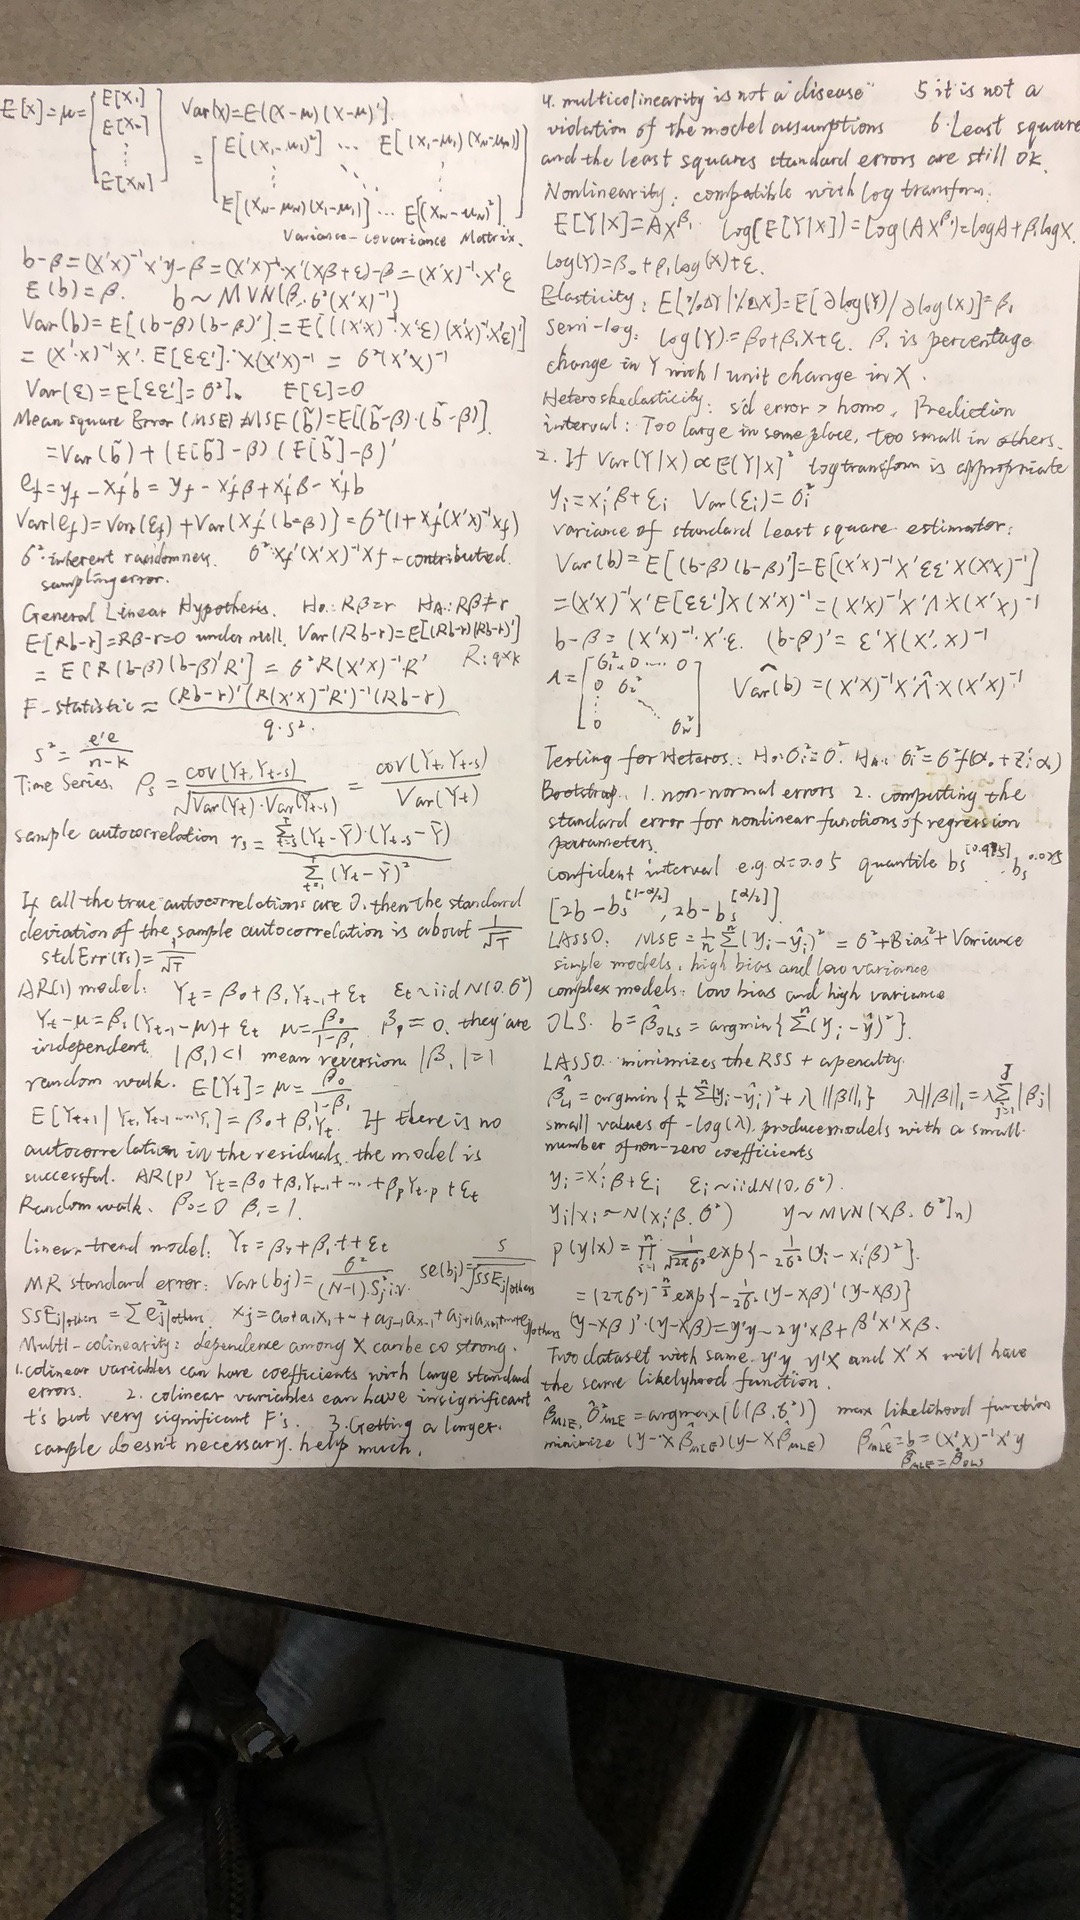 E[X]=μ=[E[X₁] E[X₂] ⋮ E[X_N]] Var(X)=E((X-μ)(X-μ)'].
=[E[(X₁-μ₁)²] ... E[(X₁-μ₁)(X_N-μ_N)]
⋮ ⋱ ⋮
E[(X_N-μ_N)(X₁-μ₁)] ... E[(X_N-μ_N)²]]
Variance-covariance Matrix.
b-β=(X'X)⁻¹X'y-β=(X'X)⁻¹X'(Xβ+ε)-β=(X'X)⁻¹X'ε
E(b)=β. b~MVN(β, σ²(X'X)⁻¹)
Var(b)=E[(b-β)(b-β)']=E[((X'X)⁻¹X'ε)(X'X)⁻¹X'ε)']
=(X'X)⁻¹X'·E[εε']·X(X'X)⁻¹ = σ²(X'X)⁻¹
Var(ε)=E[εε']=σ²Iₙ E[ε]=0
Mean square Error (MSE) MSE(b̃)=E[(b̃-β)·(b̃-β)']
=Var(b̃)+(E[b̃]-β)(E[b̃]-β)'
e_f=y_f-x_f'b=y_f-x_f'β+x_f'β-x_f'b
Var(e_f)=Var(ε_f)+Var(x_f'(b-β))=σ²(1+x_f'(X'X)⁻¹x_f)
σ²·inherent randomness. σ²·x_f'(X'X)⁻¹x_f-contributed
sampling error.
General Linear Hypothesis. H₀:Rβ=r H_A:Rβ≠r
E[Rb-r]=Rβ-r=0 under null. Var(Rb-r)=E[(Rb-r)(Rb-r)']
=E[R(b-β)(b-β)'R']=σ²R(X'X)⁻¹R' R:q×k
F-statistic=(Rb-r)'(R(X'X)⁻¹R')⁻¹(Rb-r) / q·s².
s²=e'e/(n-k)
Time Series. ρ_s=cov(Y_t,Y_t-s)/√(Var(Y_t)·Var(Y_t-s))=cov(Y_t,Y_t-s)/Var(Y_t)
sample autocorrelation r_s=Σ(Y_t-Ȳ)(Y_t-s-Ȳ)/Σ(Y_t-Ȳ)²
If all the true autocorrelations are 0, then the standard
deviation of the sample autocorrelation is about 1/√T
stdErr(r_s)=1/√T
AR(1) model: Y_t=β₀+β₁Y_t-1+ε_t ε_t~iid N(0,σ²)
Y_t-μ=β₁(Y_t-1-μ)+ε_t μ=β₀/(1-β₁) β₁=0. they are
independent. |β₁|<1 mean reversion |β₁|=1
random walk. E[Y_t]=μ=β₀/(1-β₁)
E[Y_t+1|Y_t,Y_t-1...Y₁]=β₀+β₁Y_t. If there is no
autocorrelation in the residuals, the model is
successful. AR(p) Y_t=β₀+β₁Y_t-1+...+β_pY_t-p+ε_t
Random walk. β₀=0 β₁=1.
Linear trend model: Y_t=β₀+β₁t+ε_t
MR standard error: Var(b_j)=σ²/(N-1)S²_j|.. se(b_j)=s/√SSE_j|others
SSE_j|others=Σe²_j|others. x_j=a₀+a₁x₁+...+a_j-1x_j-1+a_j+1x_j+1+...+e_j|others
Multi-colinearity: dependence among X can be so strong.
1.colinear variables can have coefficients with large standard
errors. 2. colinear variables can have insignificant
t's but very significant F's. 3.Getting a larger
sample doesn't necessary help much.
4. multicolinearity is not a "disease" 5 it is not a
violation of the model assumptions 6. Least square
and the least squares standard errors are still OK.
Nonlinearity: compatible with log transform.
E[Y|X]=AX^β₁. Log[E[Y|X])=Log(AX^β₁)=logA+β₁logX.
log(Y)=β₀+β₁log(X)+ε.
Elasticity: E[%ΔY|%ΔX]=E[∂log(Y)/∂log(X)]=β₁
semi-log: log(Y)=β₀+β₁X+ε. β₁ is percentage
change in Y with 1 unit change in X.
Heteroskedasticity: sd error > homo. Prediction
interval: Too large in some place, too small in others.
2. If Var(Y|X)∝E(Y|X]² log transform is appropriate
y_i=x_i'β+ε_i Var(ε_i)=σ_i²
variance of standard least square estimator:
Var(b)=E[(b-β)(b-β)']=E[(X'X)⁻¹X'εε'X(X'X)⁻¹]
=(X'X)⁻¹X'E[εε']X(X'X)⁻¹=(X'X)⁻¹X'ΛX(X'X)⁻¹
b-β=(X'X)⁻¹·X'·ε. (b-β)'=ε'X(X'X)⁻¹
Λ=[σ₁² 0 .... 0
0 σ₂²
⋮ ⋱
0 σ_n²] V̂ar(b)=(X'X)⁻¹X'Λ̂X(X'X)⁻¹
Testing for Heteros.: H₀:σ_i²=σ². H_A: σ_i²=σ²f(α₀+z_i'α)
Bootstrap. 1. non-normal errors 2. computing the
standard error for nonlinear functions of regression
parameters.
confident interval e.g. α=0.05 quantile b_s^[0.975], b_s^0.025
[2b-b_s^[1-α/2], 2b-b_s^[α/2]]
LASSO. MSE=1/n Σ(y_i-ŷ_i)²=σ²+Bias²+Variance
simple models: high bias and low variance
complex models: low bias and high variance
OLS. b=β̂_OLS=argmin{Σ(y_i-ŷ)²}
LASSO minimizes the RSS + a penalty.
β̂_L1=argmin{1/n Σ(y_i-ŷ_i)²+λ||β||₁} λ||β||₁=λΣ|β_j|
small values of -log(λ) produce models with a small
number of non-zero coefficients
y_i=x_i'β+ε_i ε_i~iidN(0,σ²).
y_i|x_i~N(x_i'β,σ²) y~MVN(Xβ, σ²Iₙ)
p(y|x)=∏ 1/√(2πσ²) exp{-1/2σ² (y_i-x_i'β)²}.
=(2πσ²)^-n/2 exp{-1/2σ² (y-Xβ)'(y-Xβ)}
(y-Xβ)'·(y-Xβ)=y'y-2y'Xβ+β'X'Xβ.
Two dataset with same. y'y, y'X and X'X will have
the same likelyhood function.
β̂_MLE, σ̂²_MLE=argmax(l(β,σ²)) max likelihood function
minimize (y-Xβ̂_MLE)(y-Xβ̂_MLE) β̂_MLE=b=(X'X)⁻¹X'y
β̂_MLE=β̂_OLS